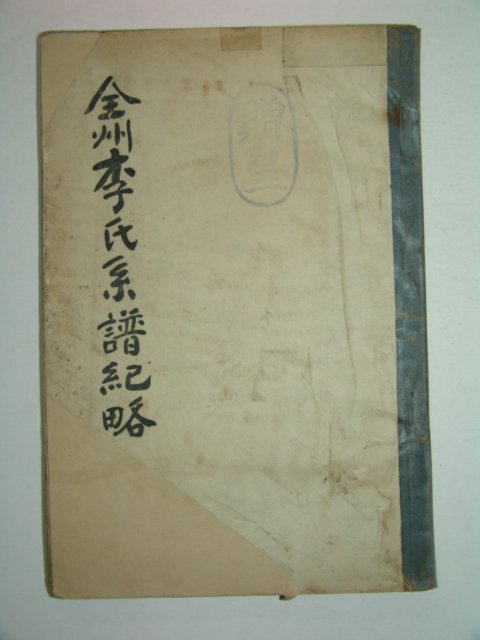 全州李氏系譜紀略
贈呈